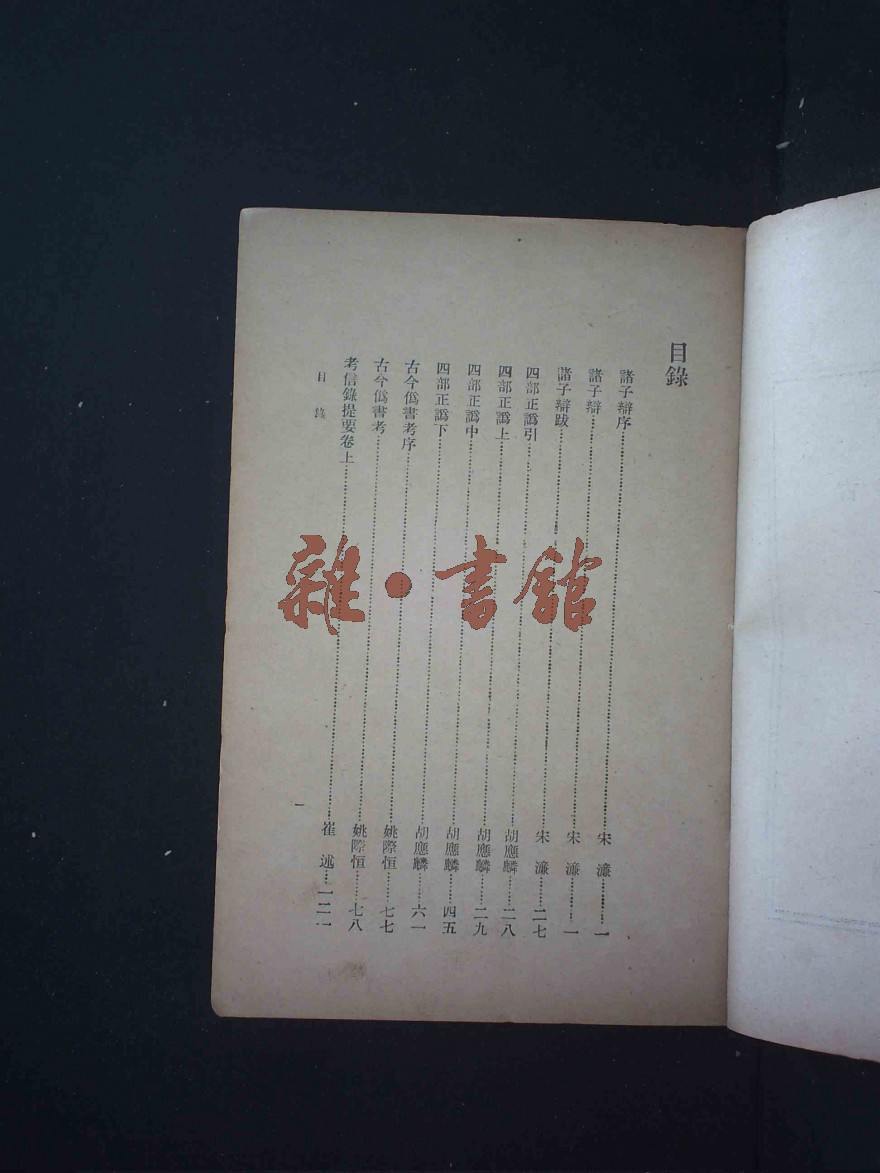 目錄
諸子辯序……宋濂……一
諸子辯……宋濂……一
諸子辯跋……宋濂……二七
四部正譌引……胡應麟……二八
四部正譌上……胡應麟……二九
四部正譌中……胡應麟……四五
四部正譌下……胡應麟……六一
古今僞書考序……姚際恒……七七
古今僞書考……姚際恒……七八
考信錄提要卷上……崔述……一二一
目錄
一
雜·書館